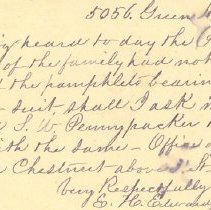 5056. Green
heard to day the
of the family had not
the pamphlets bearing
suit shall I ask
S. W. Pennypacker
with the same - Office
Chestnut above 3d St
Very Respectfully
E. H. Edward